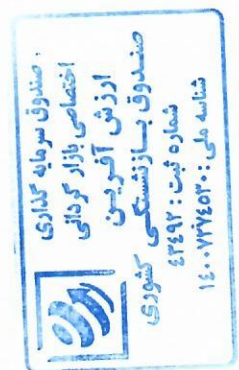 صندوق سرمایه گذاری
اختصاصی بازار گردانی
ارزش آفرین
صندوق بازنشستگی کشوری
شماره ثبت : ٤٣٤٩٢
شناسه ملی : ١٤٠٠٧٣٧٤٥٣٠